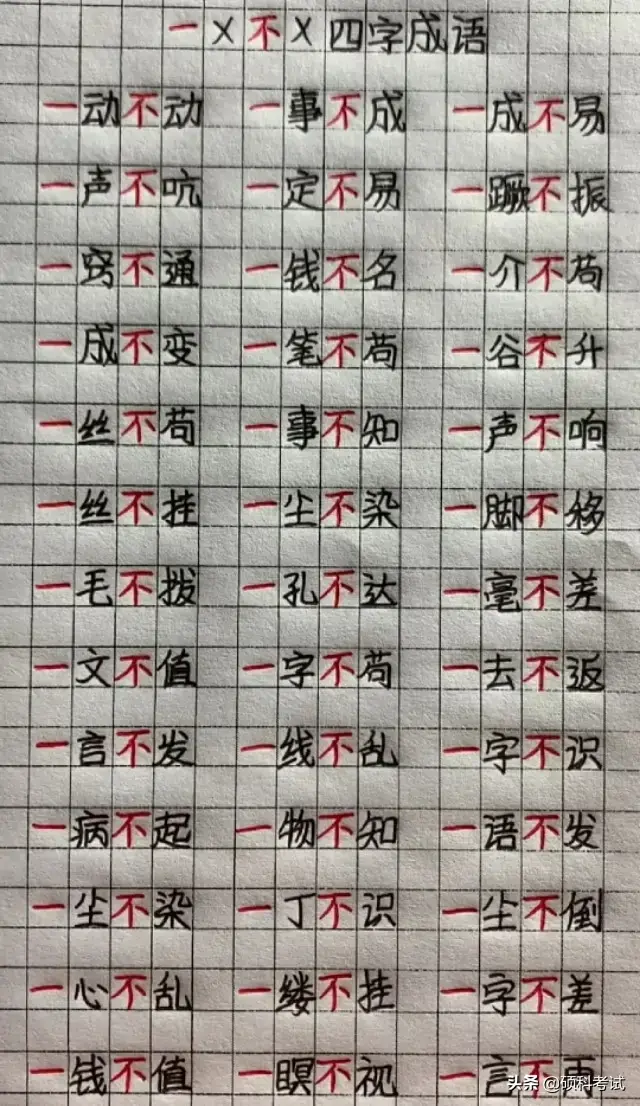 一X不X四字成语
一动不动 一事不成 一成不易
一声不吭 一定不易 一蹶不振
一窍不通 一钱不名 一介不苟
一成不变 一笔不苟 一谷不升
一丝不苟 一事不知 一声不响
一丝不挂 一尘不染 一脚不移
一毛不拨 一孔不达 一毫不差
一文不值 一字不苟 一去不返
一言不发 一线不乱 一字不识
一病不起 一物不知 一语不发
一尘不染 一丁不识 一尘不倒
一心不乱 一缕不挂 一字不差
一钱不值 一瞑不视 一言不再
头条 @硕科考试